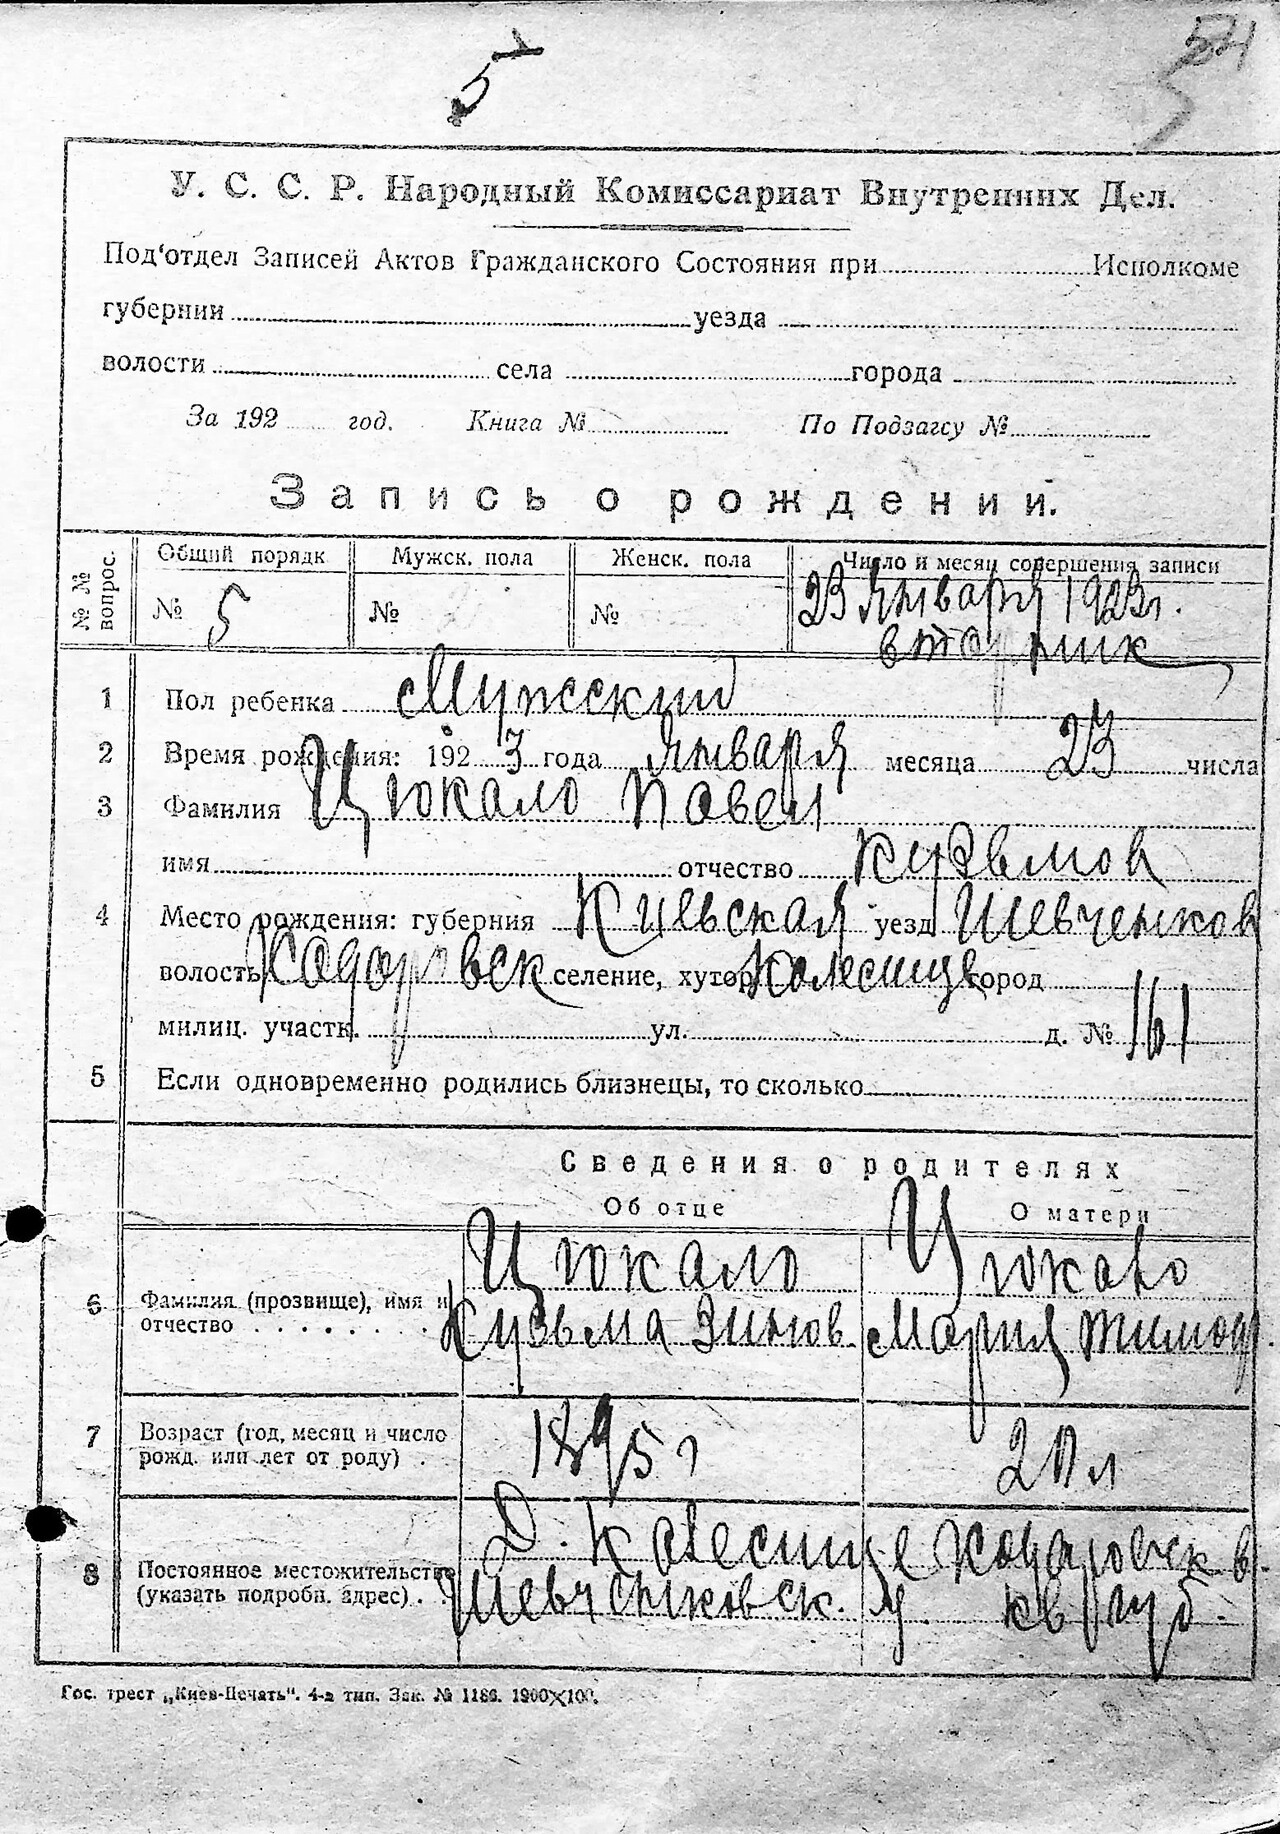 5
54
У. С. С. Р. Народный Комиссариат Внутренних Дел.
Под'отдел Записей Актов Гражданского Состояния при Исполкоме
губернии уезда
волости села города
За 192 год. Книга № По Подзагсу №
Запись о рождении.
№ № вопрос. Общий порядк Мужск. пола Женск. пола Число и месяц совершения записи
№ 5 № № 23 Января 1923 г.
вторник
1 Пол ребенка Мужской
2 Время рождения: 192 3 года Января месяца 23 числа
3 Фамилия Цюкало Павел
имя отчество Кузьмов
4 Место рождения: губерния Киевская уезд Шевченков
волость Ходоровск селение, хутор Колесище город
милиц. участк. ул. д. № 161
5 Если одновременно родились близнецы, то сколько
Сведения о родителях
Об отце О матери
Цюкало Цюкало
6 Фамилия (прозвище), имя и отчество Кузьма Зинов. Мария Тимоф.
7 Возраст (год, месяц и число рожд. или лет от роду) 1895 г 20 л
Д. Колесище Ходоровск в.
8 Постоянное местожительство (указать подробн. адрес) Шевченковск. у. Кв губ.
Гос. трест „Киев-Печать". 4-я тип. Зак. № 1186. 1900×100.